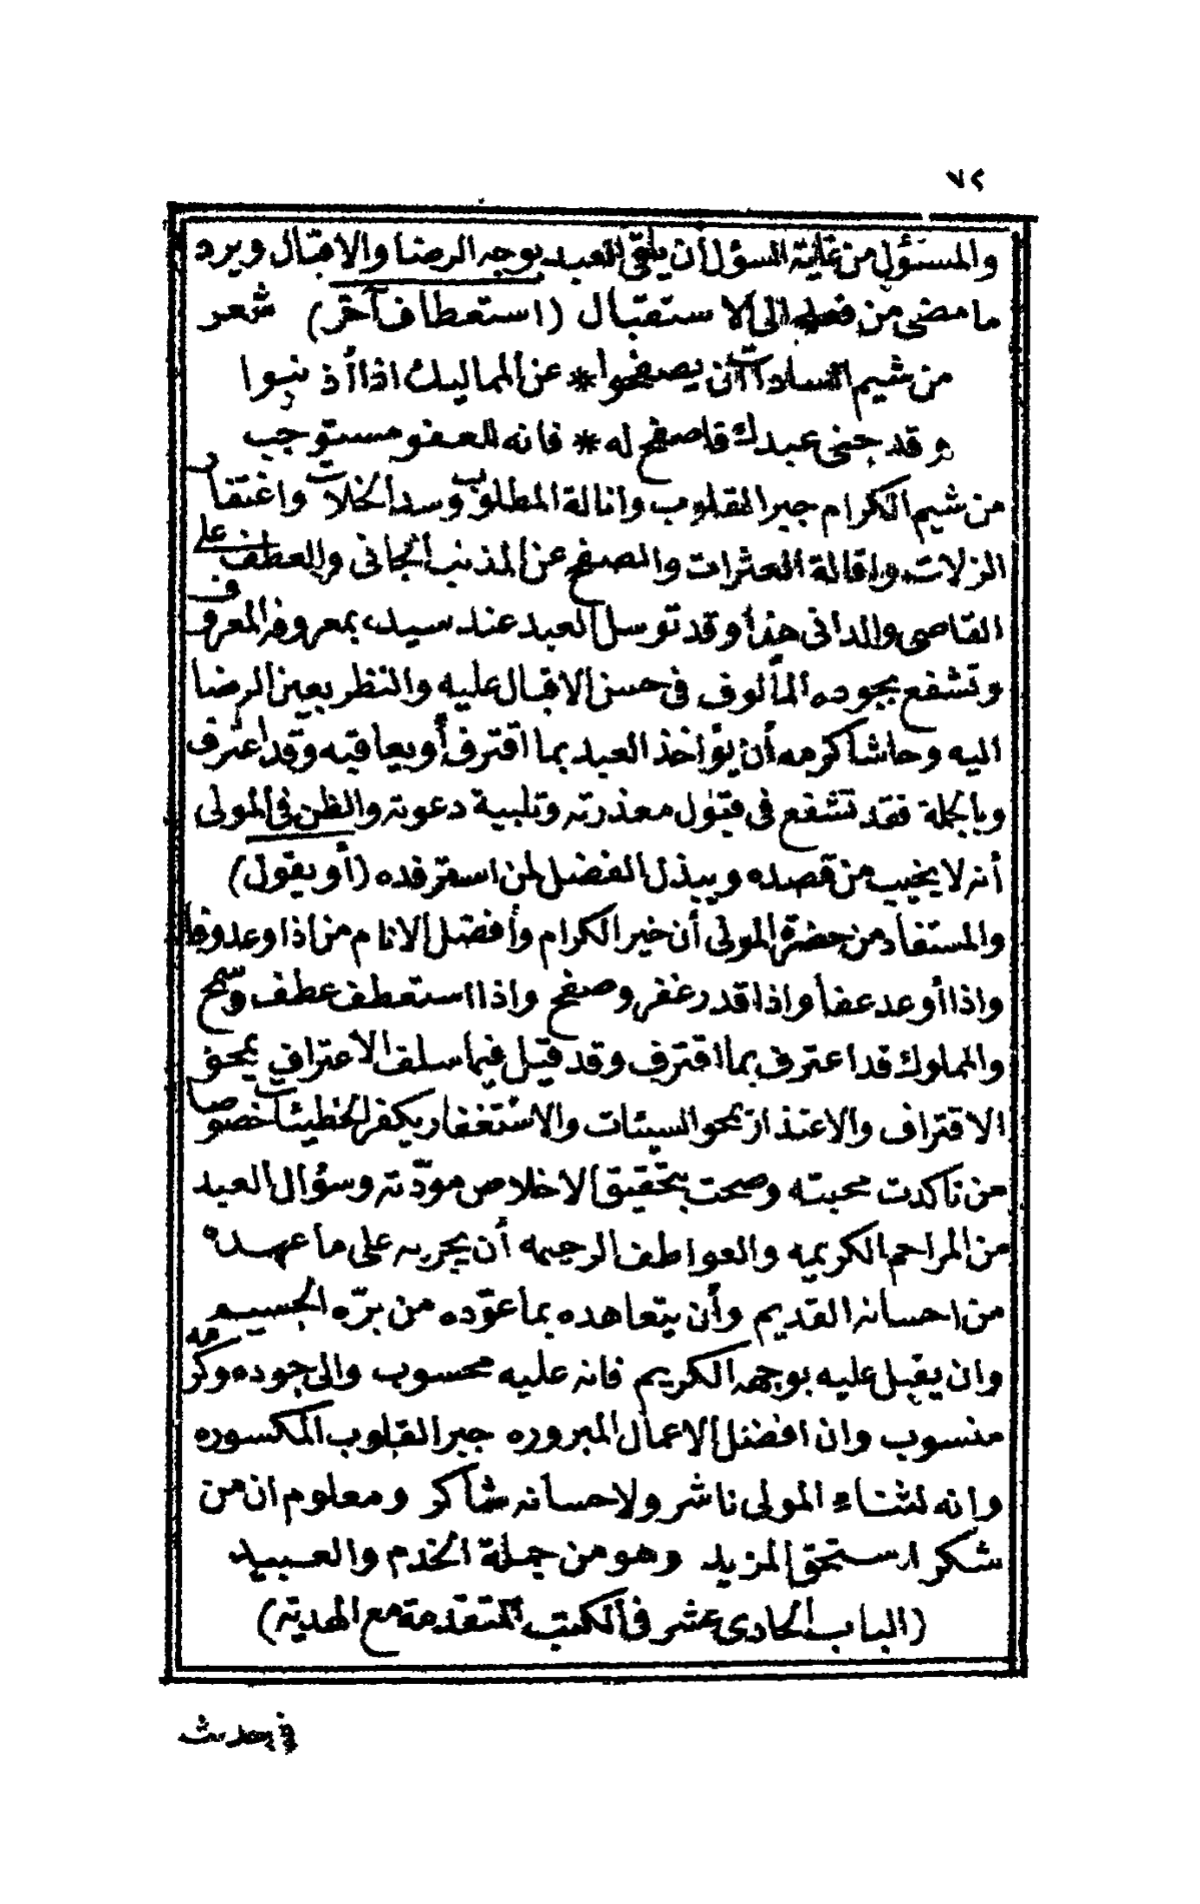 ٧٢
والمسئول من غاية السؤل أن يلقى العبد بوجه الرضا والاقبال ويرد
ما مضى من فعله الى الاستقبال (استعطاف آخر) شعر
من شيم السادات أن يصفحوا * عن المماليك اذا أذنبوا
وقد جنى عبدك فاصفح له * فانه للعفو مستوجب
من شيم الكرام جبر القلوب وانالة المطلوب وسد الخلات واغتفار
الزلات واقالة العثرات والصفح عن المذنب الجانى والعطف على
القاصى والدانى هذا وقد توسل العبد عند سيده بمعروفه المعروف
وتشفع بجوده المألوف فى حسن الاقبال عليه والنظر بعين الرضا
اليه وحاشا كرمه أن يؤاخذ العبد بما اقترف أو يعاقبه وقد اعترف
وبالجملة فقد تشفع فى قبول معذرته وتلبية دعوته والظن فى المولى
أنه لا يخيب من قصده ويبذل الفضل لمن استرفده (أو يقول)
والمستفاد من حضرة المولى أن خير الكرام وأفضل الانام من اذا وعد وفا
واذا أوعد عفا واذا قدر غفر وصفح واذا استعطف عطف وسمح
والمملوك قد اعترف بما اقترف وقد قيل فيما سلف الاعتراف يمحق
الاقتراف والاعتذار يمحو السيئات والاستغفار يكفر الخطيئات خصوصا
من تاكدت محبته وصحت بتحقيق الاخلاص مودّته وسؤال العبد
من المراحم الكريمه والعواطف الرحيمه أن يجريه على ما عهده
من احسانه القديم وأن يتعاهده بما عوّده من برّه الجسيم
وان يقبل عليه بوجهه الكريم فانه عليه محسوب والى جوده وكرمه
منسوب وان افضل الاعمال المبروره جبر القلوب المكسوره
وانه لثناء المولى ناشر ولاحسانه شاكر ومعلوم ان من
شكر استحق المزيد وهو من جملة الخدم والعبيد
(الباب الحادى عشر فى الكتب المتقدمة مع الهدية)